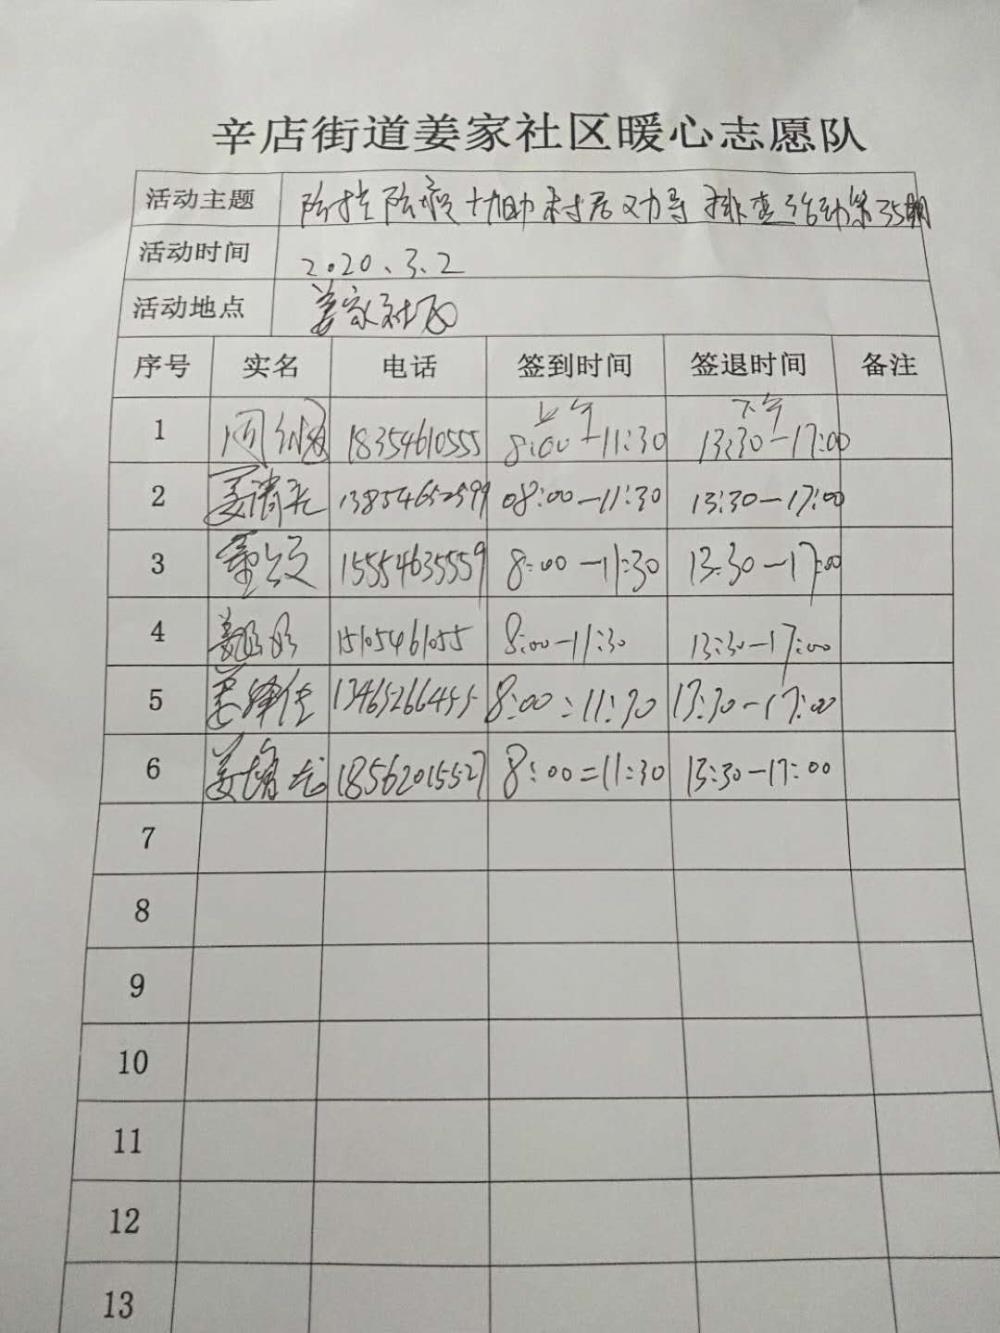 辛店街道姜家社区暖心志愿队
活动主题 防控防疫 协助村居劝导 排查活动第35期
活动时间 2020.3.2
活动地点 姜家社区
序号 实名 电话 签到时间 签退时间 备注
上午 下午
1 18354610555 8:00-11:30 13:30-17:00
2 姜 13854652599 08:00-11:30 13:30-17:00
3 15554635559 8:00-11:30 13:30-17:00
4 姜 15105461055 8:00-11:30 13:30-17:00
5 姜 13465266455 8:00=11:30 13:30-17:00
6 姜 18562015527 8:00=11:30 13:30-17:00
7
8
9
10
11
12
13